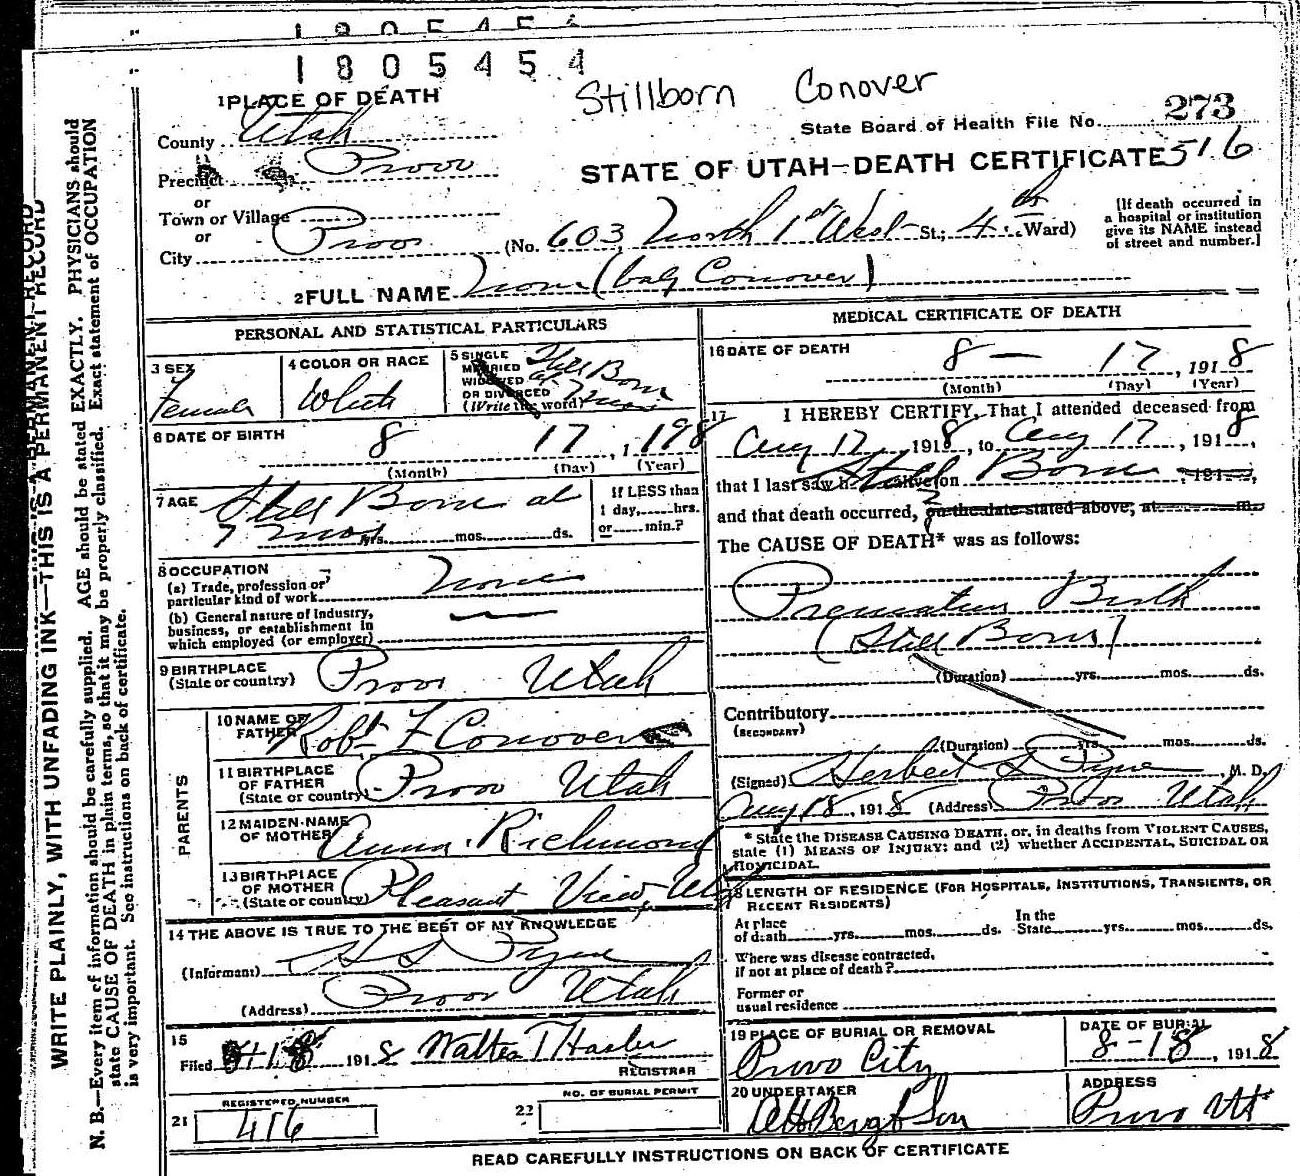 1805454
1805454
Stillborn Conover
1 PLACE OF DEATH
County Utah
State Board of Health File No. 273
Precinct Provo
STATE OF UTAH—DEATH CERTIFICATE 516
or
Town or Village
or
City Provo
(No. 603 North 1st West St.; 4th Ward)
[If death occurred in
a hospital or institution
give its NAME instead
of street and number.]
2 FULL NAME None (baby Conover)
PERSONAL AND STATISTICAL PARTICULARS
3 SEX
Female
4 COLOR OR RACE
White
5 SINGLE
MARRIED
WIDOWED
OR DIVORCED
(Write the word)
Still Born
at
7 mos
6 DATE OF BIRTH
8 17, 1918
(Month) (Day) (Year)
7 AGE
Still Born at
7 mos yrs. mos. ds.
If LESS than
1 day, hrs.
or min.?
8 OCCUPATION
(a) Trade, profession or
particular kind of work None
(b) General nature of Industry,
business, or establishment in
which employed (or employer)
9 BIRTHPLACE
(State or country) Provo Utah
PARENTS
10 NAME OF
FATHER Robt F Conover
11 BIRTHPLACE
OF FATHER
(State or country) Provo Utah
12 MAIDEN NAME
OF MOTHER Anna Richmond
13 BIRTHPLACE
OF MOTHER
(State or country) Pleasant View, Utah
14 THE ABOVE IS TRUE TO THE BEST OF MY KNOWLEDGE
(Informant) H S Pyne
(Address) Provo Utah
15
Filed 8-18 1918 Walter T Hasler
REGISTRAR
21
REGISTERED NUMBER
416
22
NO. OF BURIAL PERMIT
MEDICAL CERTIFICATE OF DEATH
16 DATE OF DEATH
8 — 17, 1918
(Month) (Day) (Year)
17 I HEREBY CERTIFY, That I attended deceased from
Aug 17 1918, to Aug 17, 1918,
that I last saw h alive on Still Born, 191
and that death occurred, on the date stated above, at m.
The CAUSE OF DEATH* was as follows:
Premature Birth
(Still Born)
(Duration) yrs. mos. ds.
Contributory
(SECONDARY)
(Duration) yrs. mos. ds.
(Signed) Herbert S Pyne, M. D.
Aug 18, 1918 (Address) Provo Utah
* State the DISEASE CAUSING DEATH, or, in deaths from VIOLENT CAUSES,
state (1) MEANS OF INJURY; and (2) whether ACCIDENTAL, SUICIDAL OR
HOMICIDAL.
18 LENGTH OF RESIDENCE (FOR HOSPITALS, INSTITUTIONS, TRANSIENTS, OR
RECENT RESIDENTS)
At place
of death yrs. mos. ds.
In the
State yrs. mos. ds.
Where was disease contracted,
if not at place of death?
Former or
usual residence
19 PLACE OF BURIAL OR REMOVAL
Provo City
DATE OF BURIAL
8-18, 1918
20 UNDERTAKER
Berg & Son
ADDRESS
Provo Ut
READ CAREFULLY INSTRUCTIONS ON BACK OF CERTIFICATE
WRITE PLAINLY, WITH UNFADING INK—THIS IS A PERMANENT RECORD
N. B.—Every item of information should be carefully supplied. AGE should be stated EXACTLY. PHYSICIANS should
state CAUSE OF DEATH in plain terms, so that it may be properly classified. Exact statement of OCCUPATION
is very important. See instructions on back of certificate.